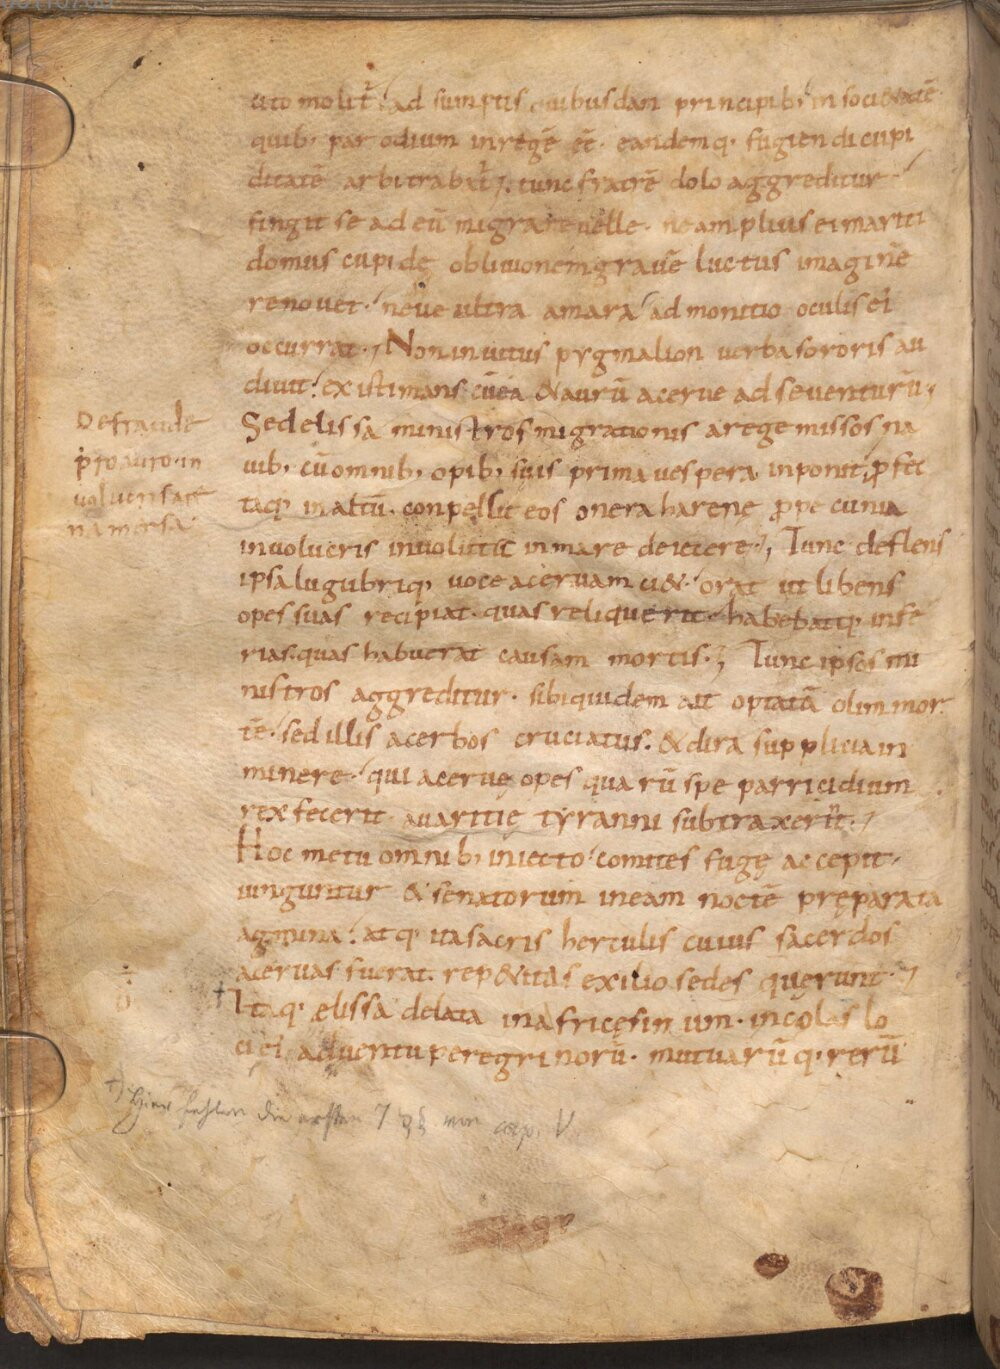 cito molit̄. ad sumptis quibusdam principib; in soci&atē
quib; par odium inregē eē. eandemq. fugiendi cupi
ditatē arbitrabat̄; tunc fratrē dolo aggreditur.
fingit se ad eū migrare uelle. ne amplius ei mariti
domus cupidę obliuionem grauē luctus imaginē
renouet. neue ultra amara admonitio oculis ei
occurrat; Non inuitus pygmalion uerba sororis au
diuit. existimans cū ea & aurū acerue ad se uenturū;
Sed elissa ministros migrationis a rege missos na
uib; cū omnib; opib; suis prima uespera inponit, ꝓfec
taq; in altū. conpellit eos onera harenę ꝓ pecunia
inuolucris inuolutis in mare deicere; Tunc deflens
ipsa lugubriq; uoce aceruam ci&. orat ut libens
opes suas recipiat. quas reliquerit. habebatq; infe
rias. quas habuerat causam mortis; Tunc ipsos mi
nistros aggreditur. sibi quidem ait optatā olim mor
tē. sed illis acerbos cruciatus. & dira supplicia in
minere. qui acerue opes quarū spe parricidium
rex fecerit auaritię tyranni subtraxerīt;
Hoc metu omnib; iniecto. comites fugę accepit;
iunguntur & senatorum in eam noctē pręparata
agmina. atq. ita sacris herculis cuius sacerdos
aceruas fuerat. rep&itis exilio sedes querunt;
† Itaq. elissa delata in africę sinum. incolas lo
ci ei aduentu peregrinorū. mutuarūq. rerū
De fraude
pro auro in
uolucris are
na mersa
†) Hier fehlen die ersten 7 §§ von cap. V